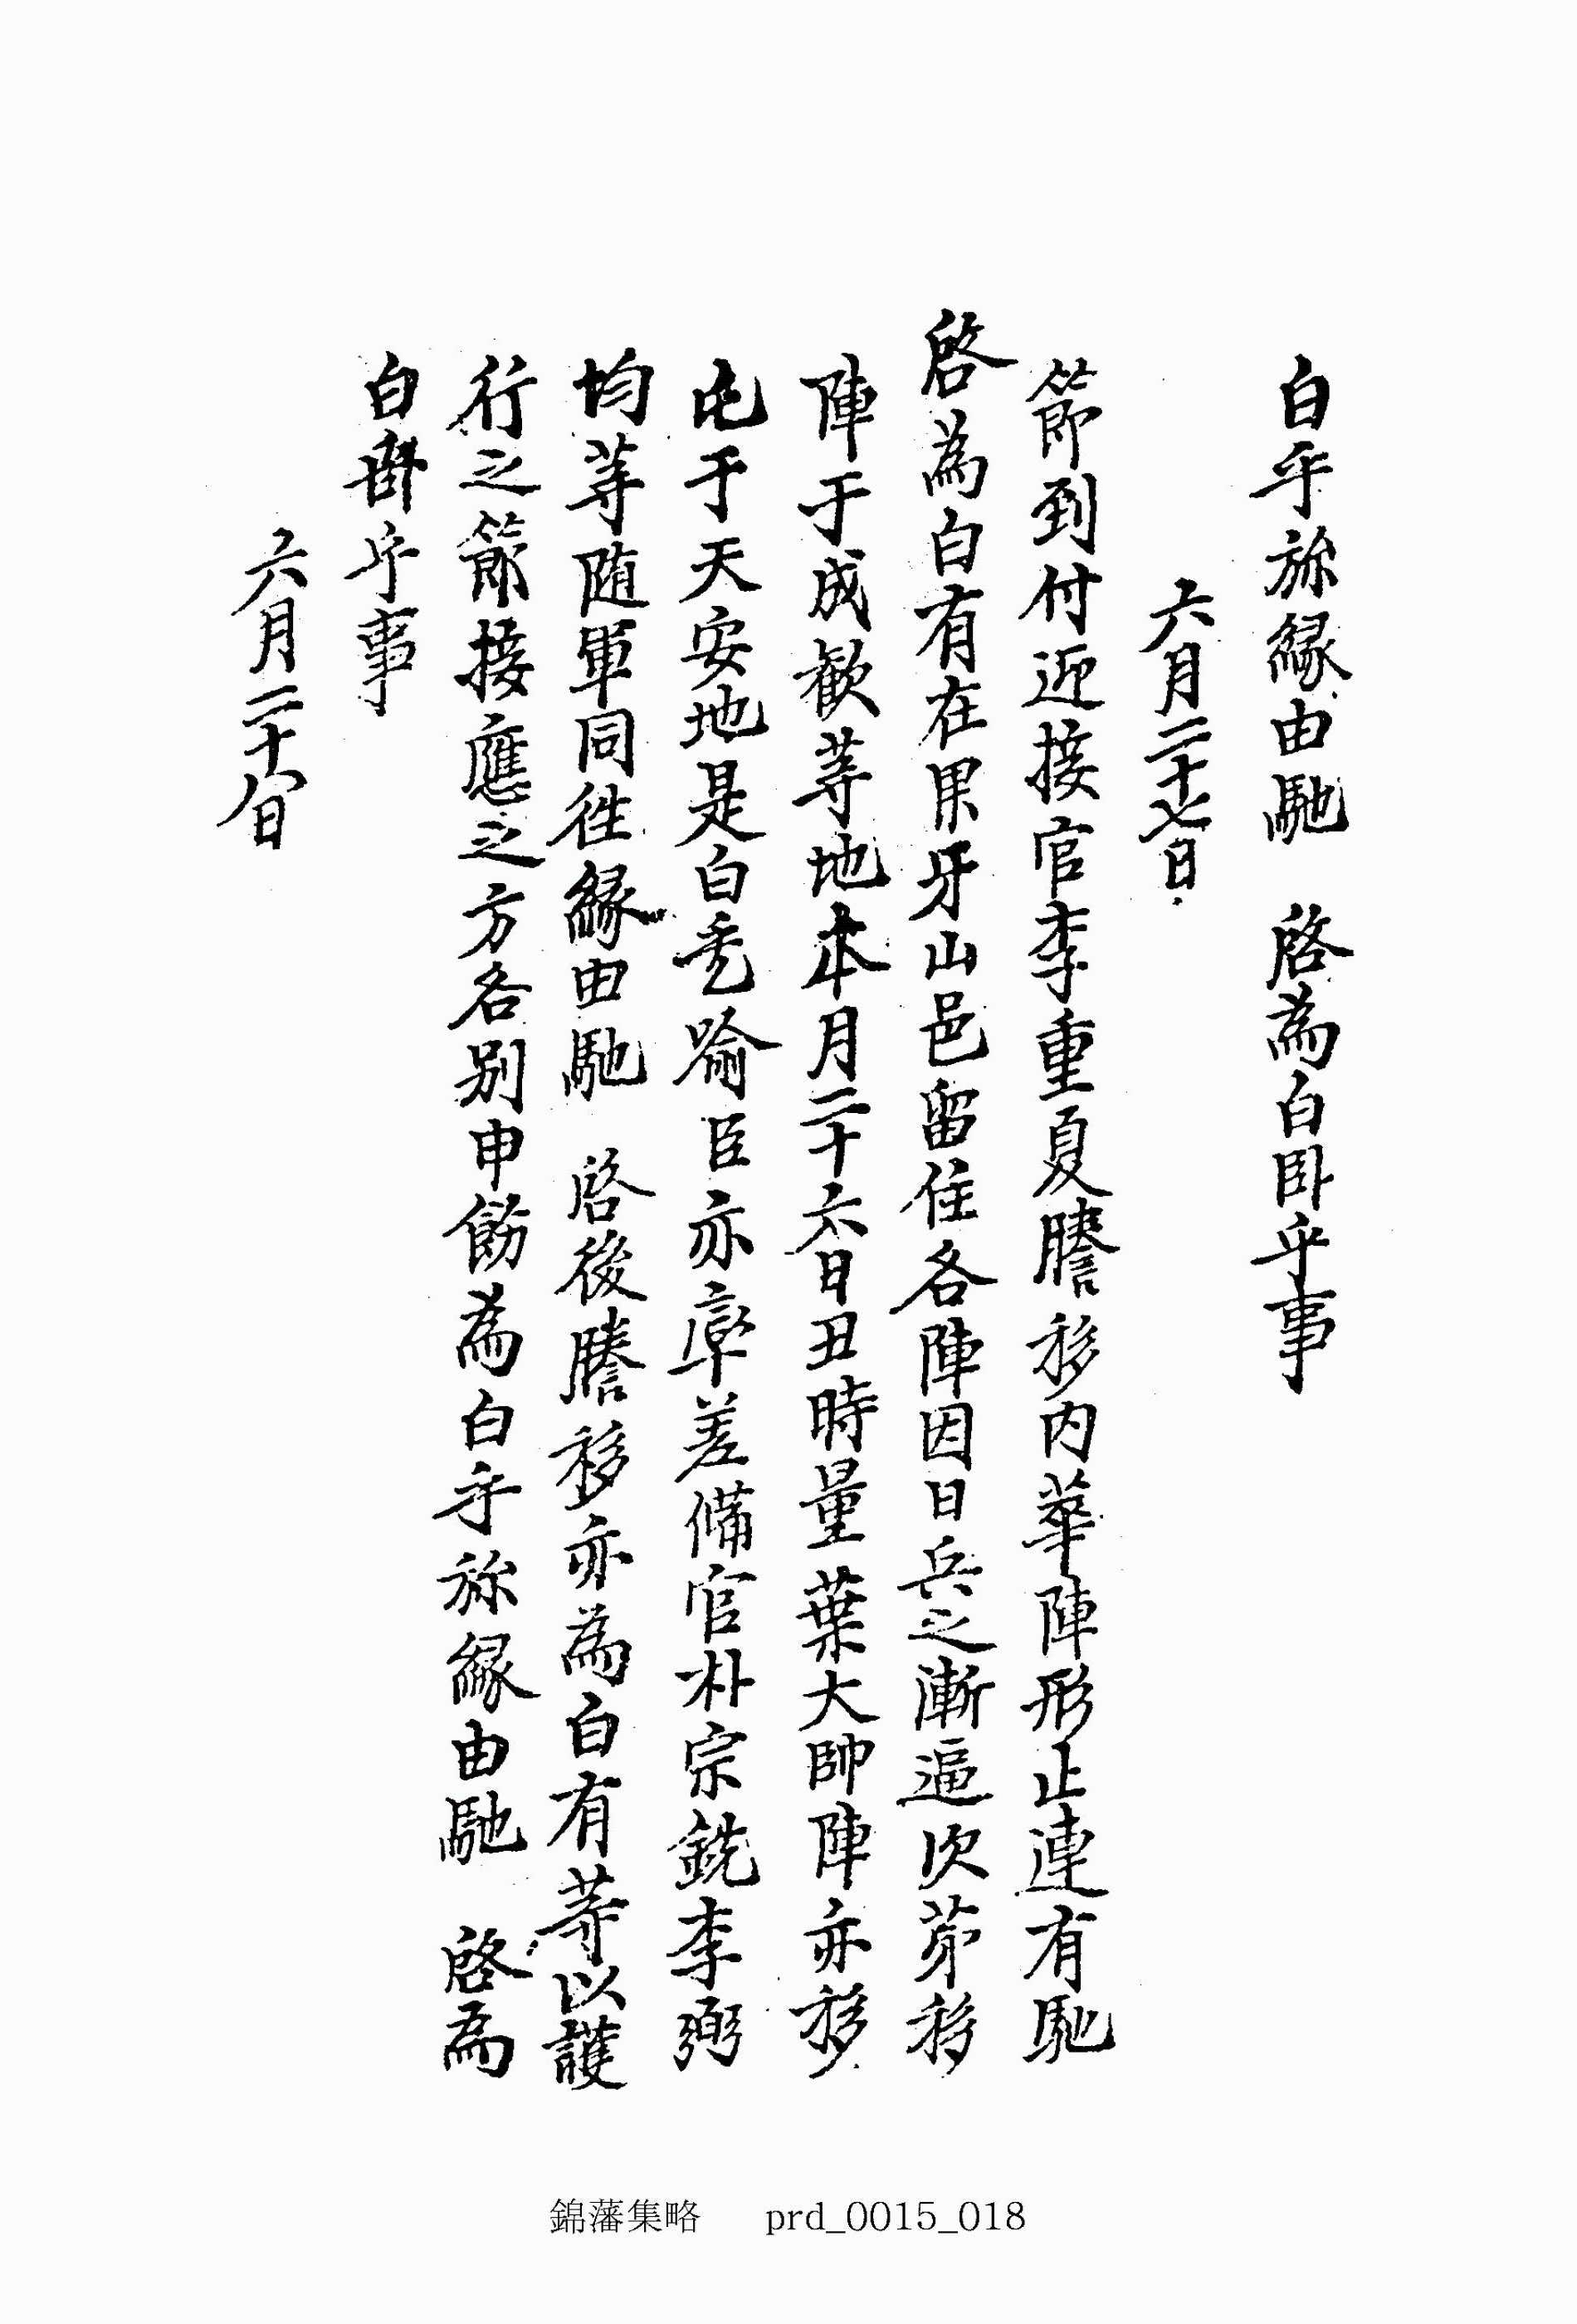 白乎旀緣由馳 啓爲白臥乎事
六月二十七日
節到付迎接官李重夏謄移內華陣形止連有馳
啓爲白有在果牙山邑留住各陣因日兵之漸逼次苐移
陣于成歡等地本月二十六日丑時量葉大帥陣亦移
屯于天安地是白乎喩臣亦率差備官朴宗銑李弼
均等隨軍同徃緣由馳 啓後謄移亦爲白有等以護
行之節接應之方各別申飭爲白乎旀緣由馳 啓爲
白臥乎事
六月二十八日
錦藩集略 prd_0015_018